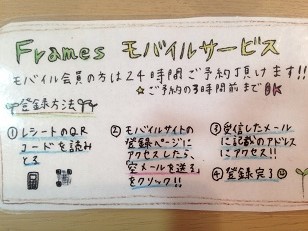 Frames モバイルサービス
モバイル会員の方は24時間ご予約頂けます!!
☆ご予約の3時間前までOK
登録方法
①レシートのQR
コードを読み
とる
②モバイルサイトの
登録ページに
アクセスしたら、
「空メールを送る」
をクリック!!
③受信したメール
に記載のアドレス
にアクセス!!
④登録完了☺